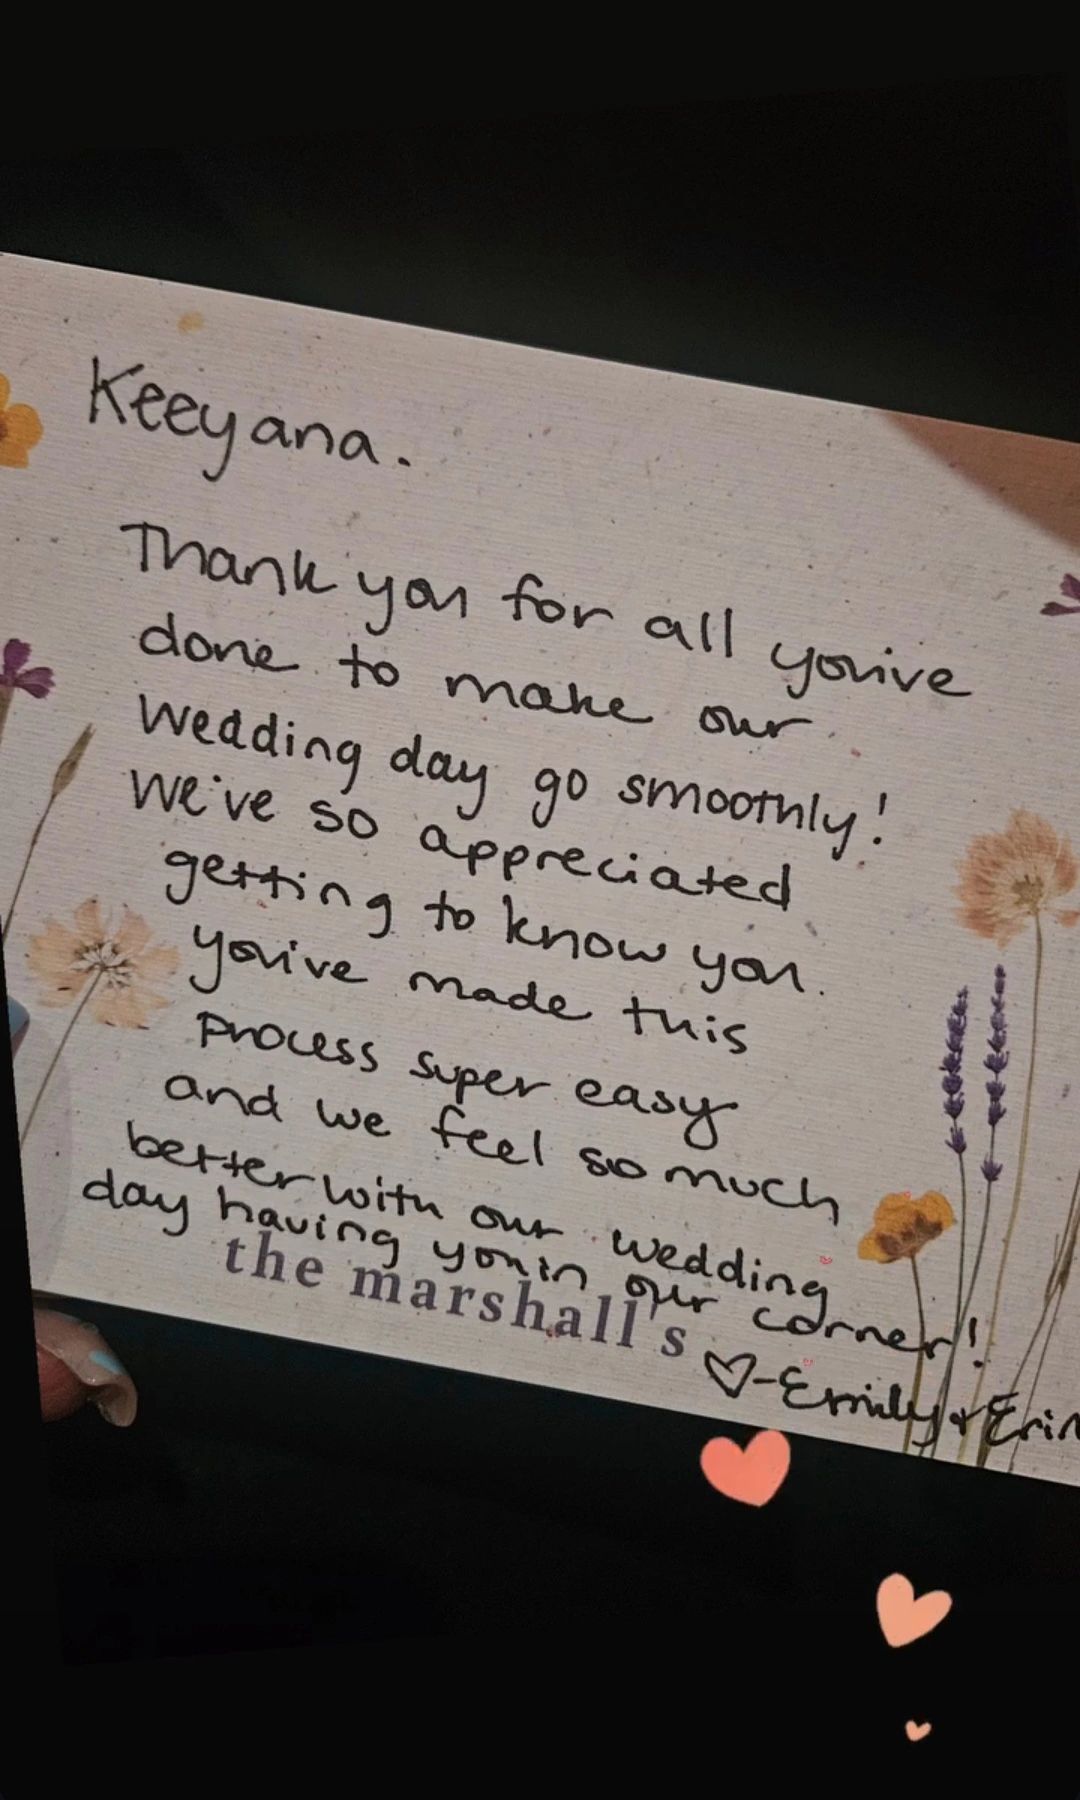 Keeyana.
Thank you for all you've
done to make our
wedding day go smoothly!
We've so appreciated
getting to know you.
you've made this
process super easy
and we feel so much
better with our wedding
day having you in our corner!
the marshall's
♡-Emily + Erin